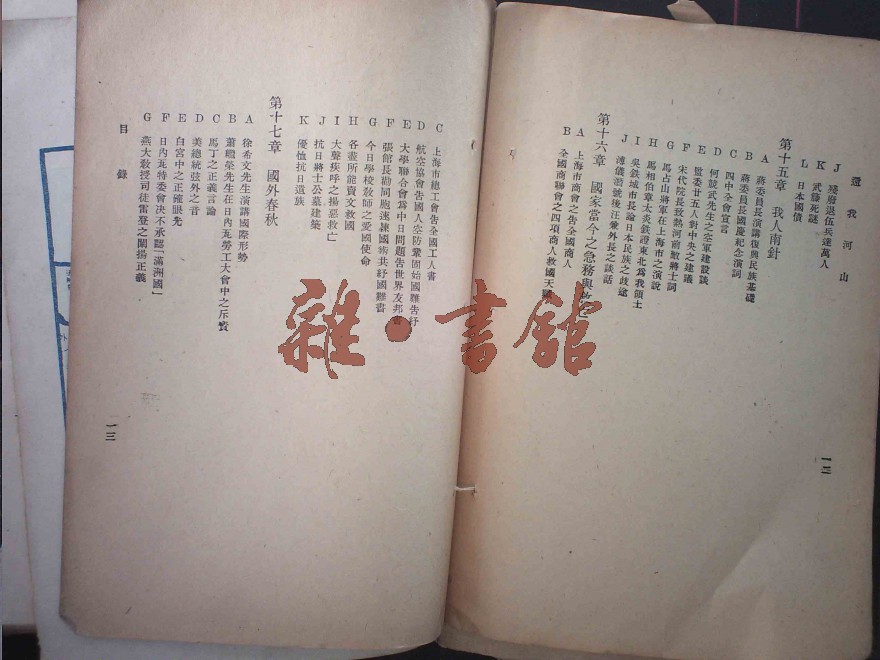 還我河山
J 殘廢退伍兵達萬人
K 武藤死謎
L 日本國債
第十五章 我人南針
A 蔣委員長演講復興民族基礎
B 蔣委員長國慶紀念演詞
C 四中全會宣言
D 何競武先生之空軍建設談
E 監委廿五人對中央之建議
F 宋代院長致熱河前敵將士詞
G 馬占山將軍在上海市之演說
H 馬相伯章太炎證東北為我領土
I 吳鐵城市長論日本民族之歧途
J 溥儀僭號後汪兼外長之談話
第十六章 國家當今之急務與救亡
A 上海市商會之告全國商人
B 全國商聯會之四項商人救國天職
一二
C 上海市總工會告全國工人書
D 航空協會告國人空防鞏固始國難告紓
E 大學聯合會為中日問題告世界友邦書
F 張館長勸同胞速練國術共紓國難書
G 今日學校敎師之愛國使命
H 各盡所能賣文救國
I 大聲疾呼之揚惡救亡
J 抗日將士公墓建築
K 優恤抗日遺族
第十七章 國外春秋
A 徐希文先生演講國際形勢
B 蕭繼榮先生在日內瓦勞工大會中之斥責
C 馬丁之正義言論
D 美總統弦外之音
E 白宮中之正確眼光
F 日內瓦特委會決不承認「滿洲國」
G 燕大敎授司徒雷登之闡揚正義
目錄
一三
雜·書館